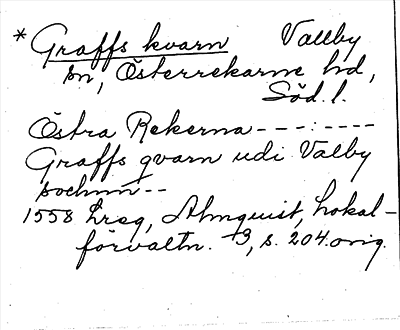 * Graffs kvarn Vallby
sn, Österrekarne hd,
Söd. l.
Östra Rekerna ---:----
Graffs qvarn udi Valby
sochnn --
1558 hreg, Almquist, Lokal-
förvaltn. 3, s. 204. orig.